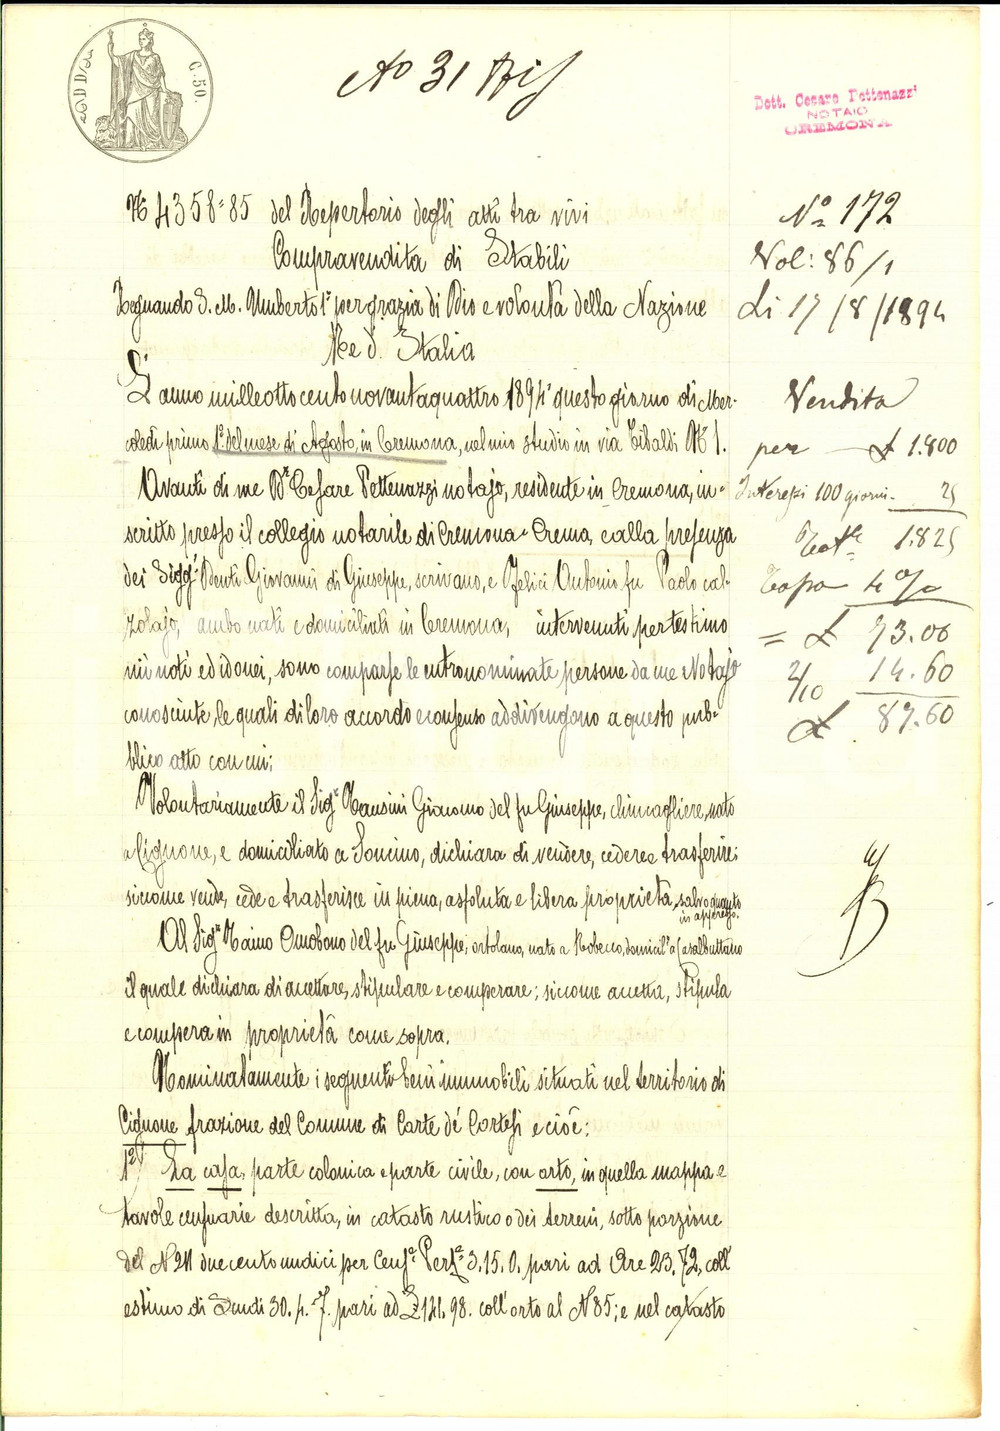 C. 50.
No 31 Bis
Dott. Cesare Pettenazzi
NOTAIO
CREMONA
N 4358=85 del Repertorio degli atti tra vivi
Compravendita di Stabili
Regnando S. M. Umberto 1° per grazia di Dio e volontà della Nazione
Re d' Italia
L' anno milleottocentonovantaquattro 1894 questo giorno di Mer-
coledì primo 1° del mese di Agosto, in Cremona, nel mio studio in via Tibaldi N 1.
Avanti di me Dr. Cesare Pettenazzi notajo, residente in Cremona, in-
scritto presso il collegio notarile di Cremona-Crema, e alla presenza
dei Sigg.i Denti Giovanni di Giuseppe, scrivano, e Felici Antonio fu Paolo cal-
zolajo, ambo nati e domiciliati in Cremona, intervenuti per testimo
nii noti ed idonei, sono comparse le entronominate persone da me Notajo
conosciute, le quali di loro accordo e consenso addivengono a questo pub-
blico atto con cui;
Volontariamente il Sig.r Mansini Giacomo del fu Giuseppe, chincagliere, nato
a Cignone, e domiciliato a Soncino, dichiara di vendere, cedere e trasferire;
siccome vende, cede e trasferisce in piena, assoluta e libera proprietà, salvo quanto
in appresso.
Al Sig.r Maino Omobono del fu Giuseppe, ortolano, nato a Robecco, domicil.o a Casalbuttano
il quale dichiara di accettare, stipulare e comperare; siccome accetta, stipula
e compera in proprietà come sopra.
Nominatamente i seguenti beni immobili situati nel territorio di
Cignone frazione del Comune di Corte de' Cortesi e cioè:
1° La casa, parte colonica e parte civile, con orto, in quella mappa e
tavole censuarie descritta, in catasto rustico o dei terreni, sotto porzione
del N 211 duecentoundici per Cens.e Pert.e 3. 15. 0. pari ad Are 23. 72, coll'
estimo di Scudi 30. 4. 7. pari ad £ 141. 98. coll' orto al N 85; e nel catasto
No 172
Vol: 86/1
Li 17/8/1894
Vendita
per £ 1.800
Interessi 100 giorni. 25
Tot.le 1.825
Tassa 4 %
= £ 73.00
2/10 14.60
£ 87.60